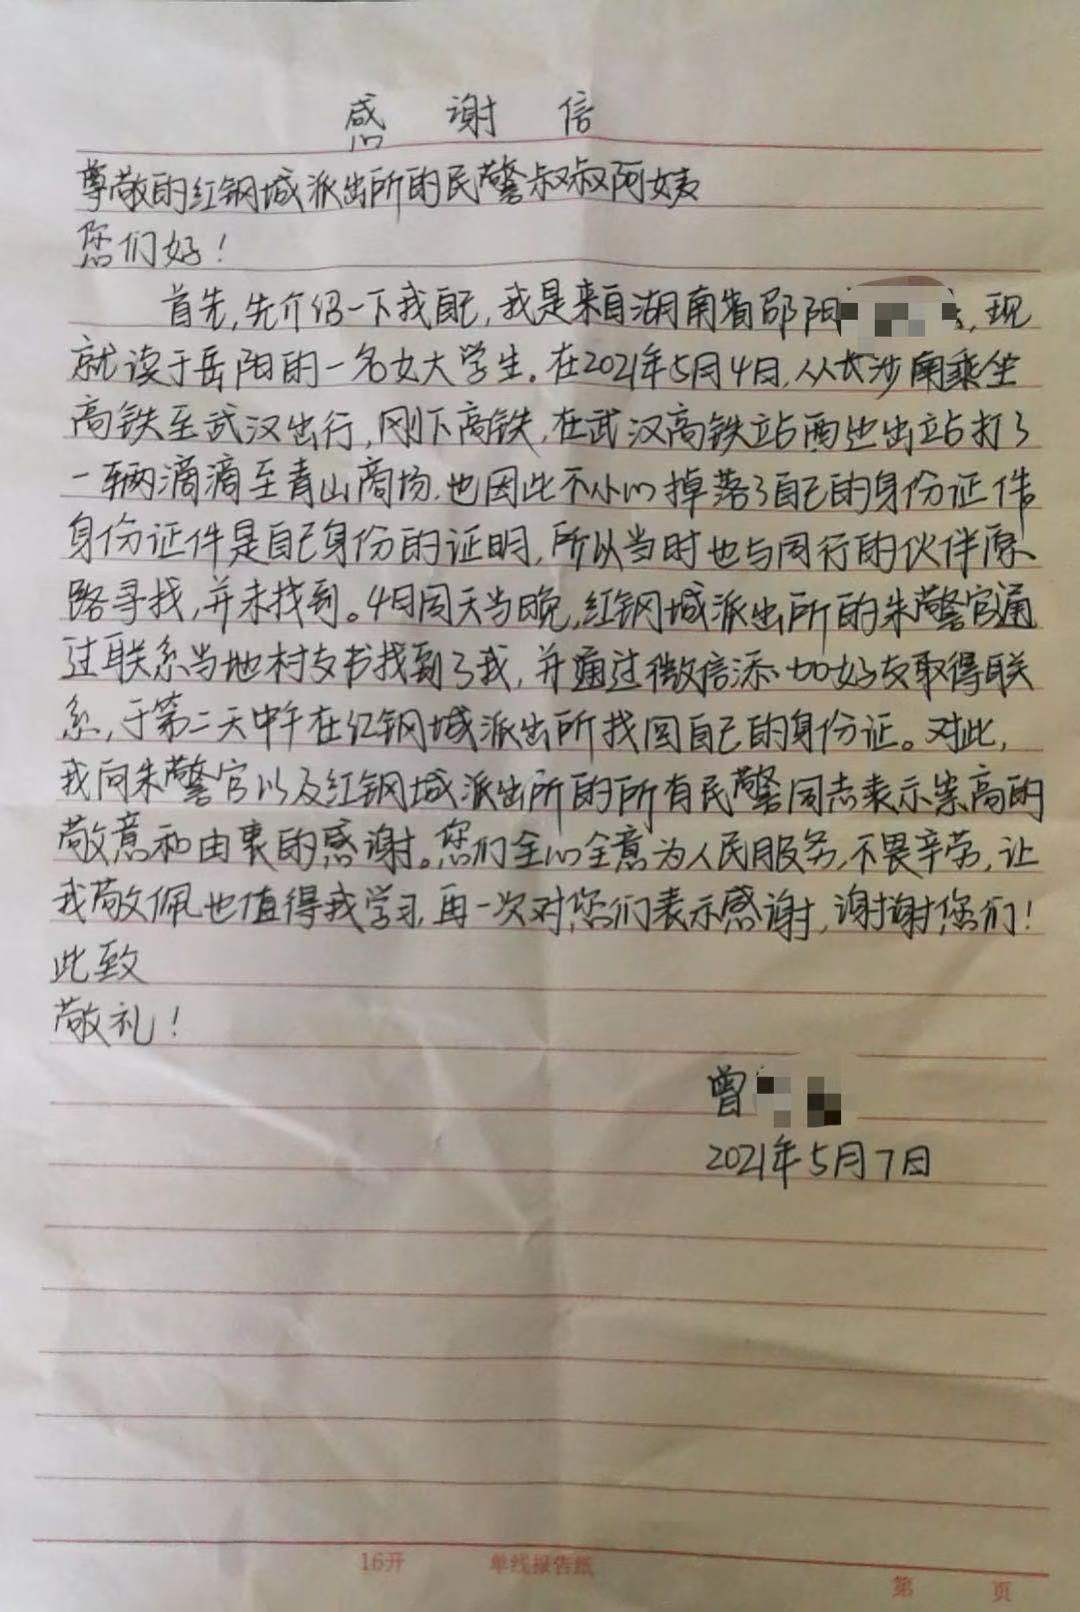 感谢信
尊敬的红钢城派出所的民警叔叔阿姨
您们好！
首先,先介绍一下我自己,我是来自湖南省邵阳,现
就读于岳阳的一名女大学生。在2021年5月4日,从长沙南乘坐
高铁至武汉出行,刚下高铁,在武汉高铁站西边出站打了
一辆滴滴至青山商场,也因此不小心掉落了自己的身份证件
身份证件是自己身份的证明,所以当时也与同行的伙伴原
路寻找,并未找到。4日同天当晚,红钢城派出所的朱警官通
过联系当地村支书找到了我,并通过微信添加好友取得联
系,于第二天中午在红钢城派出所找回自己的身份证。对此,
我向朱警官以及红钢城派出所的所有民警同志表示崇高的
敬意和由衷的感谢。您们全心全意为人民服务,不畏辛劳,让
我敬佩也值得我学习,再一次对您们表示感谢,谢谢您们！
此致
敬礼！
曾
2021年5月7日
16开 单线报告纸 第 页